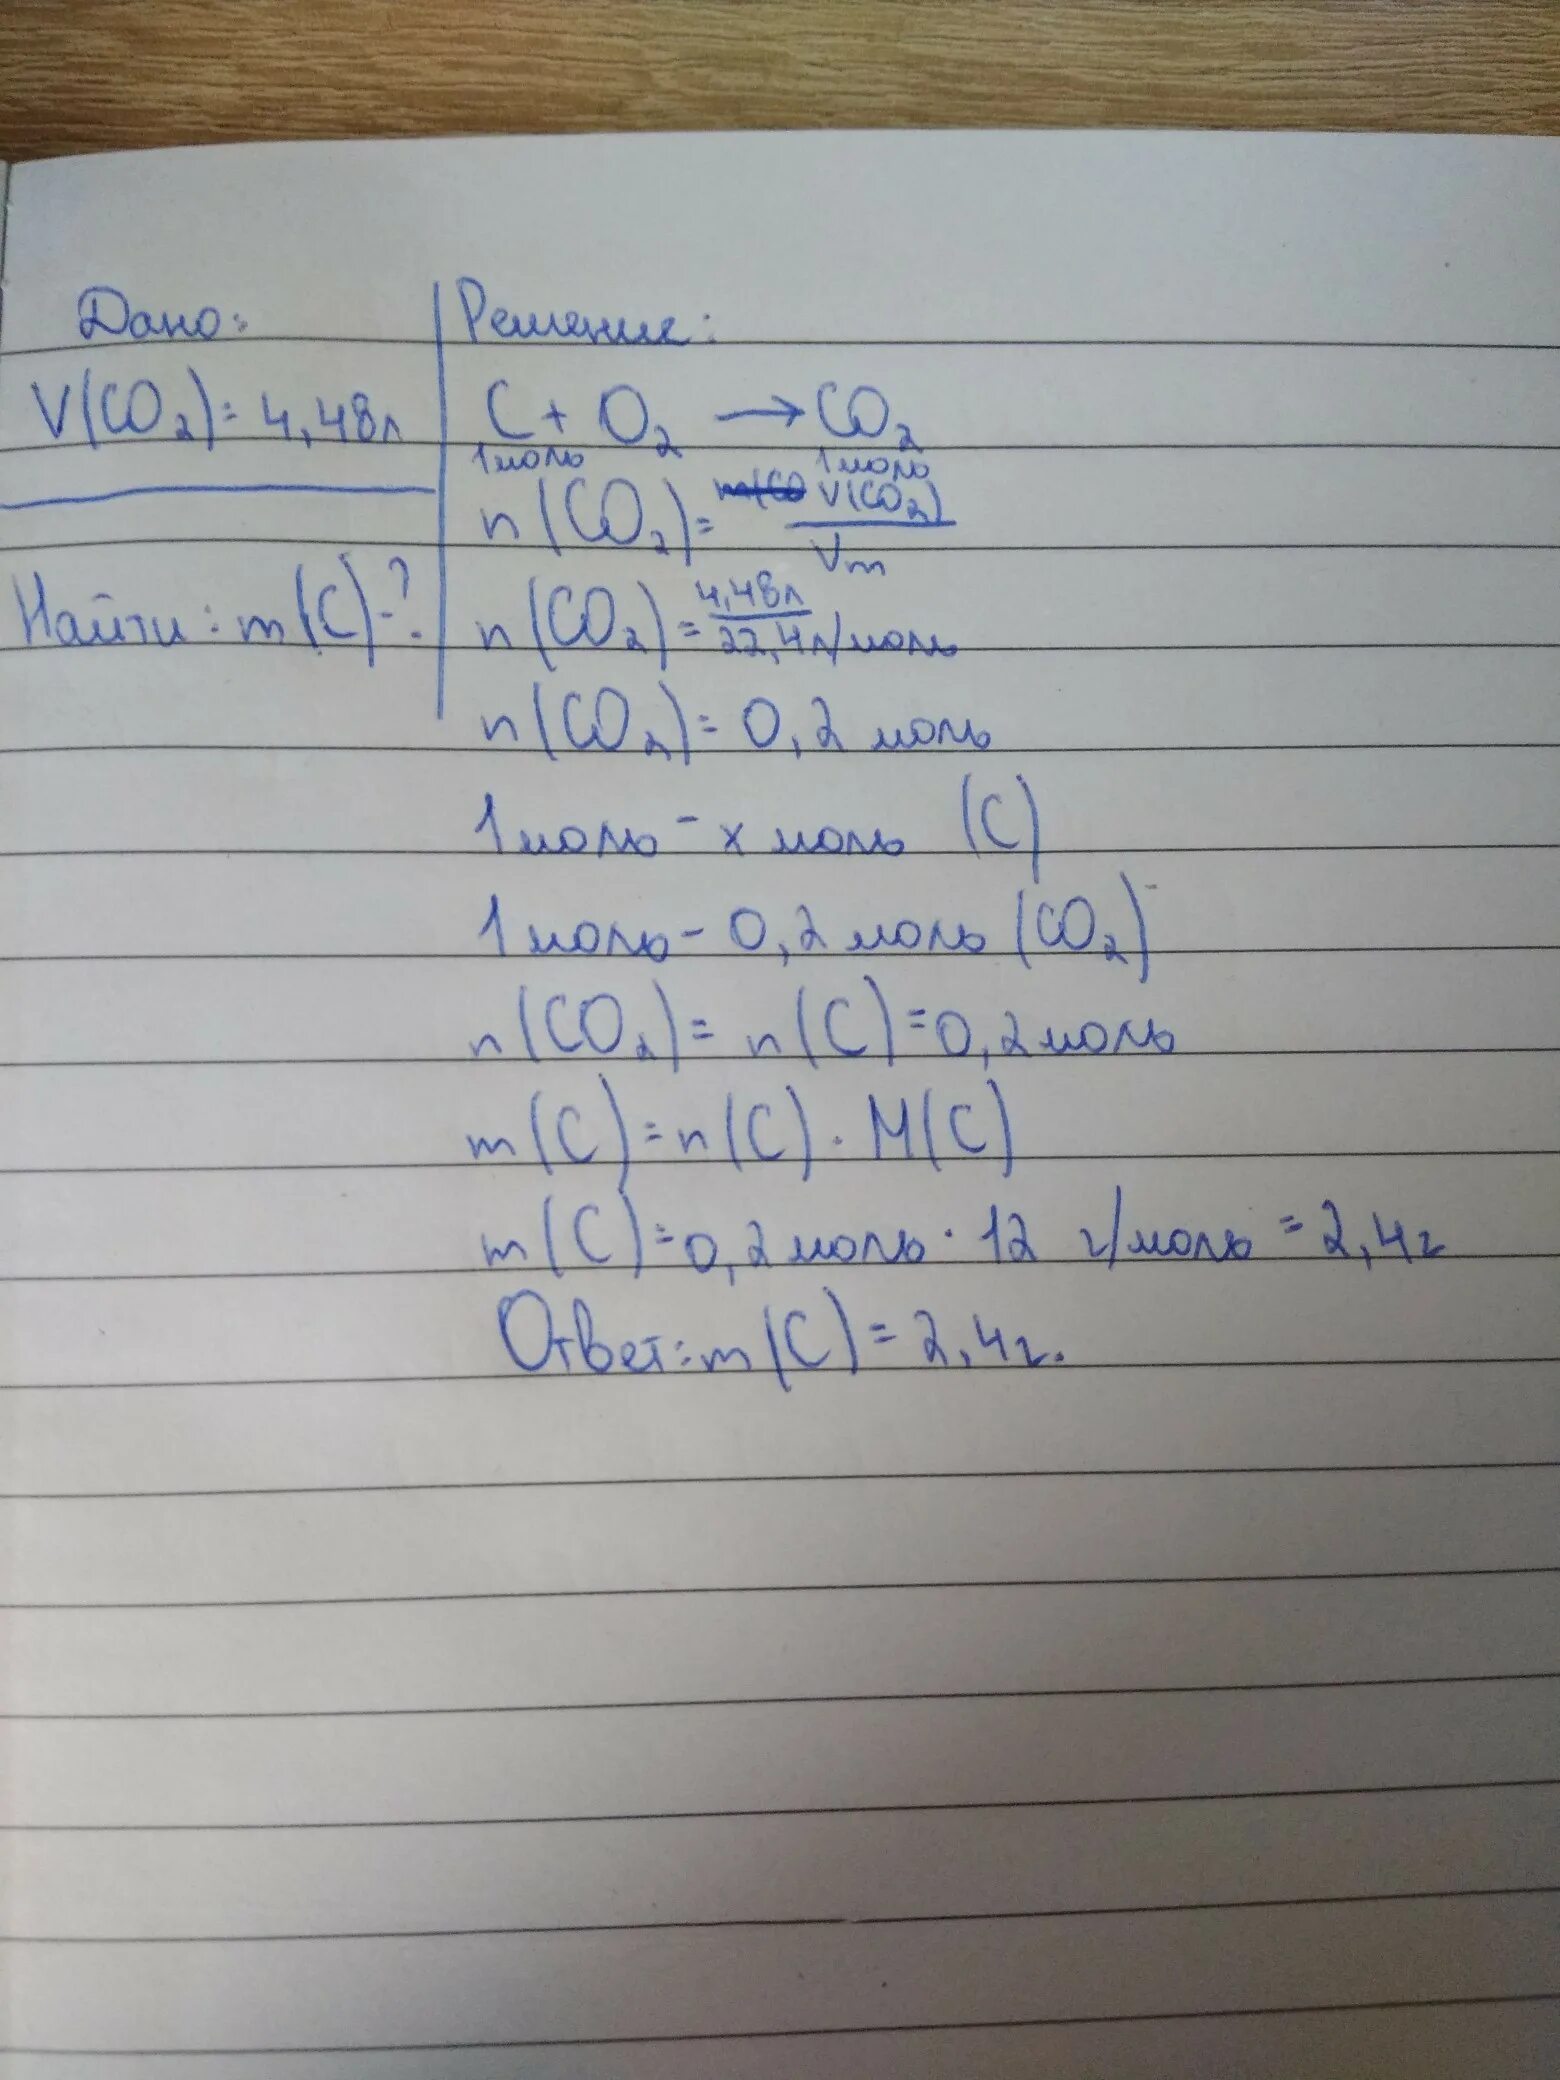 Дано:
V(CO₂) = 4,48л
Найти: m(C)-?
Решение:
C + O₂ → CO₂
1моль 1моль
n(CO₂) = m(CO V(CO₂)/Vm
n(CO₂) = 4,48л/22,4л/моль
n(CO₂) = 0,2 моль
1 моль - x моль (C)
1 моль - 0,2 моль (CO₂)
n(CO₂) = n(C) = 0,2 моль
m(C) = n(C) · M(C)
m(C) = 0,2 моль · 12 г/моль = 2,4г
Ответ: m(C) = 2,4г.